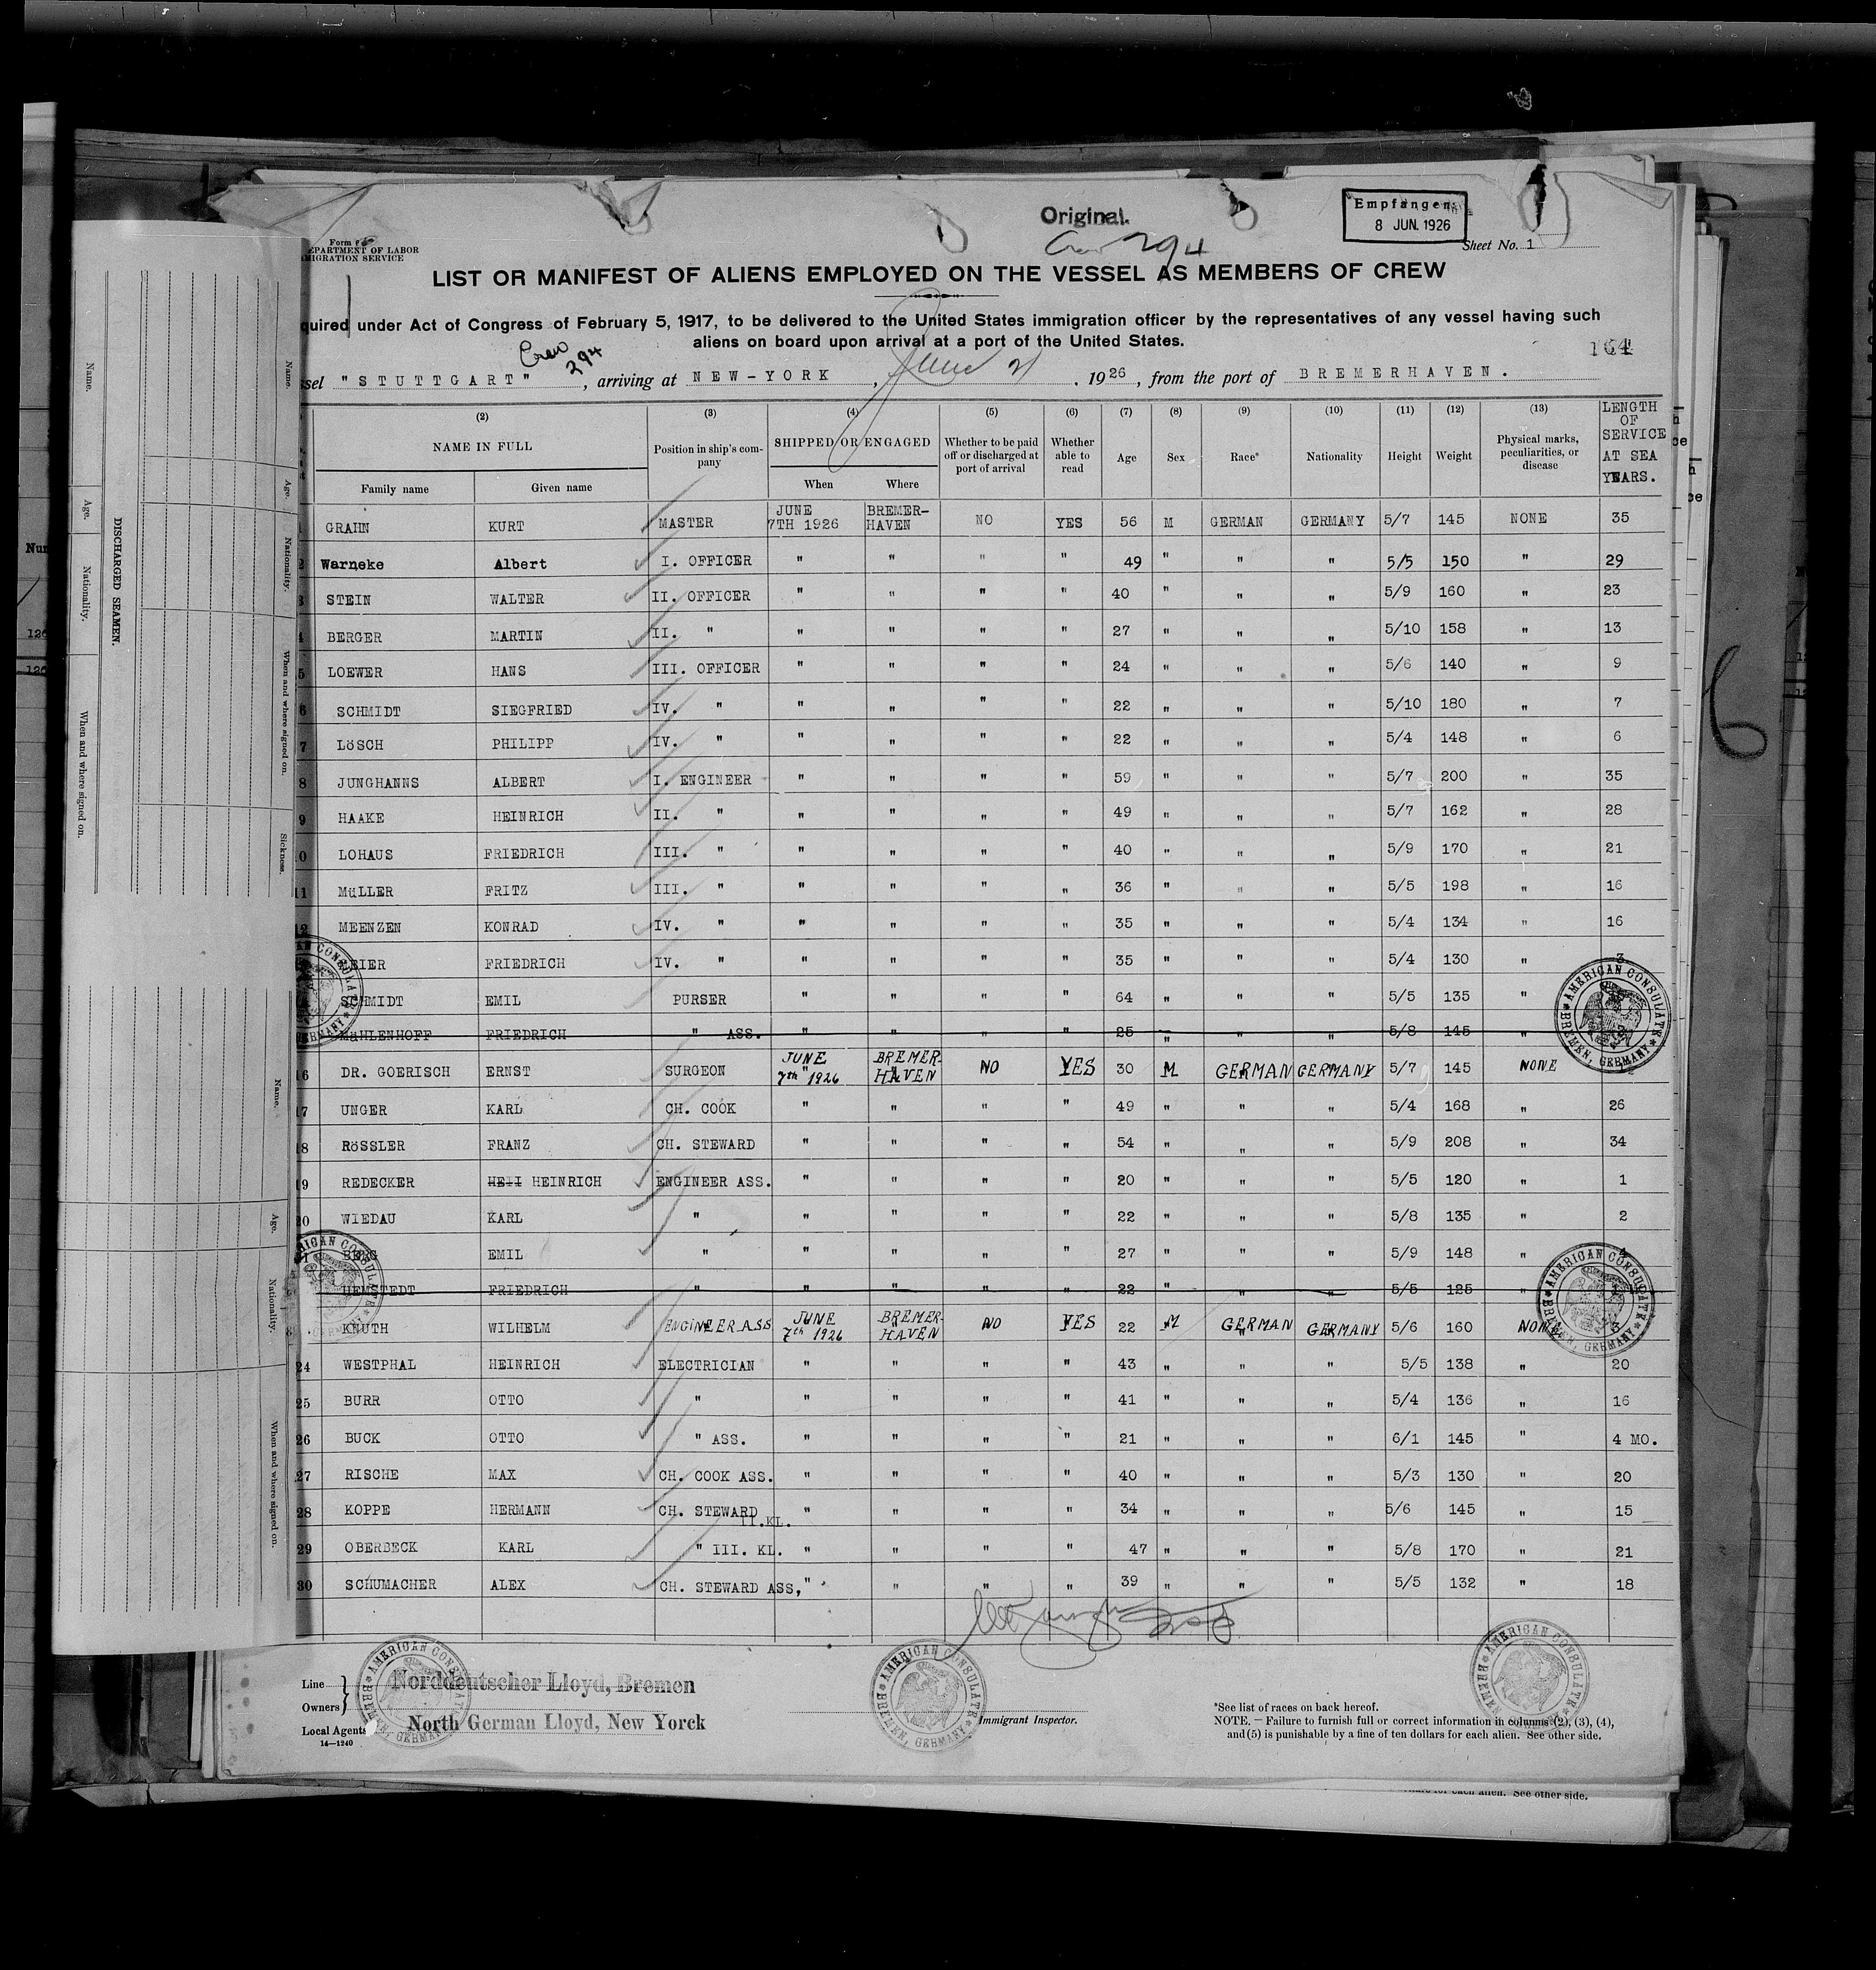 Original.
Empfangen:
8 JUN. 1926
Crew 294
Sheet No. 1
Form
EPARTMENT OF LABOR
MIGRATION SERVICE
LIST OR MANIFEST OF ALIENS EMPLOYED ON THE VESSEL AS MEMBERS OF CREW
quired under Act of Congress of February 5, 1917, to be delivered to the United States immigration officer by the representatives of any vessel having such
aliens on board upon arrival at a port of the United States.
164
Crew 294
ssel "STUTTGART", arriving at NEW-YORK, June 21, 1926, from the port of BREMERHAVEN.
(2) (3) (4) (5) (6) (7) (8) (9) (10) (11) (12) (13)
NAME IN FULL Position in ship's company SHIPPED OR ENGAGED Whether to be paid off or discharged at port of arrival Whether able to read Age Sex Race* Nationality Height Weight Physical marks, peculiarities, or disease LENGTH OF SERVICE AT SEA YEARS.
Family name Given name When Where
GRAHN KURT MASTER JUNE 7TH 1926 BREMER-HAVEN NO YES 56 M GERMAN GERMANY 5/7 145 NONE 35
2 Warneke Albert I. OFFICER " " " " 49 " " " 5/5 150 " 29
3 STEIN WALTER II. OFFICER " " " " 40 " " " 5/9 160 " 23
4 BERGER MARTIN II. " " " " " 27 " " " 5/10 158 " 13
5 LOEWER HANS III. OFFICER " " " " 24 " " " 5/6 140 " 9
6 SCHMIDT SIEGFRIED IV. " " " " " 22 " " " 5/10 180 " 7
7 LöSCH PHILIPP IV. " " " " " 22 " " " 5/4 148 " 6
8 JUNGHANNS ALBERT I. ENGINEER " " " " 59 " " " 5/7 200 " 35
9 HAAKE HEINRICH II. " " " " " 49 " " " 5/7 162 " 28
0 LOHAUS FRIEDRICH III. " " " " " 40 " " " 5/9 170 " 21
11 MüLLER FRITZ III. " " " " " 36 " " " 5/5 198 " 16
12 MEENZEN KONRAD IV. " " " " " 35 " " " 5/4 134 " 16
MEIER FRIEDRICH IV. " " " " " 35 " " " 5/4 130 " 3
SCHMIDT EMIL PURSER " " " " 64 " " " 5/5 135 "
MüHLENHOFF FRIEDRICH " ASS. " " " " 25 " " " 5/8 145 "
16 DR. GOERISCH ERNST SURGEON JUNE 7th 1926 BREMER-HAVEN NO YES 30 M GERMAN GERMANY 5/7 145 NONE
17 UNGER KARL CH. COOK " " " " 49 " " " 5/4 168 " 26
18 RöSSLER FRANZ CH. STEWARD " " " " 54 " " " 5/9 208 " 34
19 REDECKER HEII HEINRICH ENGINEER ASS. " " " " 20 " " " 5/5 120 " 1
20 WIEDAU KARL " " " " " 22 " " " 5/8 135 " 2
BERG EMIL " " " " " 27 " " " 5/9 148 "
HEMSTEDT FRIEDRICH " " " " " 22 " " " 5/5 125 "
KNUTH WILHELM ENGINEER ASS JUNE 7th 1926 BREMER-HAVEN NO YES 22 M GERMAN GERMANY 5/6 160 NONE 3
24 WESTPHAL HEINRICH ELECTRICIAN " " " " 43 " " " 5/5 138 " 20
25 BURR OTTO " " " " " 41 " " " 5/4 136 " 16
26 BUCK OTTO " ASS. " " " " 21 " " " 6/1 145 " 4 MO.
27 RISCHE MAX CH. COOK ASS. " " " " 40 " " " 5/3 130 " 20
28 KOPPE HERMANN CH. STEWARD II.KL. " " " " 34 " " " 5/6 145 " 15
29 OBERBECK KARL " III. KL. " " " " 47 " " " 5/8 170 " 21
30 SCHUMACHER ALEX CH. STEWARD ASS, " " " " 39 " " " 5/5 132 " 18
Line
Owners
Norddeutscher Lloyd, Bremen
Local Agents North German Lloyd, New Yorck
14—1240
Immigrant Inspector.
*See list of races on back hereof.
NOTE.—Failure to furnish full or correct information in columns (2), (3), (4),
and (5) is punishable by a fine of ten dollars for each alien. See other side.
AMERICAN CONSULATE BREMEN, GERMANY
AMERICAN CONSULATE BREMEN, GERMANY
AMERICAN CONSULATE BREMEN, GERMANY
AMERICAN CONSULATE BREMEN, GERMANY
AMERICAN CONSULATE BREMEN, GERMANY
DISCHARGED SEAMEN.
Name. Age. Nationality. When and where signed on.
Name. Age. Nationality. When and where signed on. Sickness.
Name. Age. Nationality. When and where signed on.
for each alien. See other side.
6